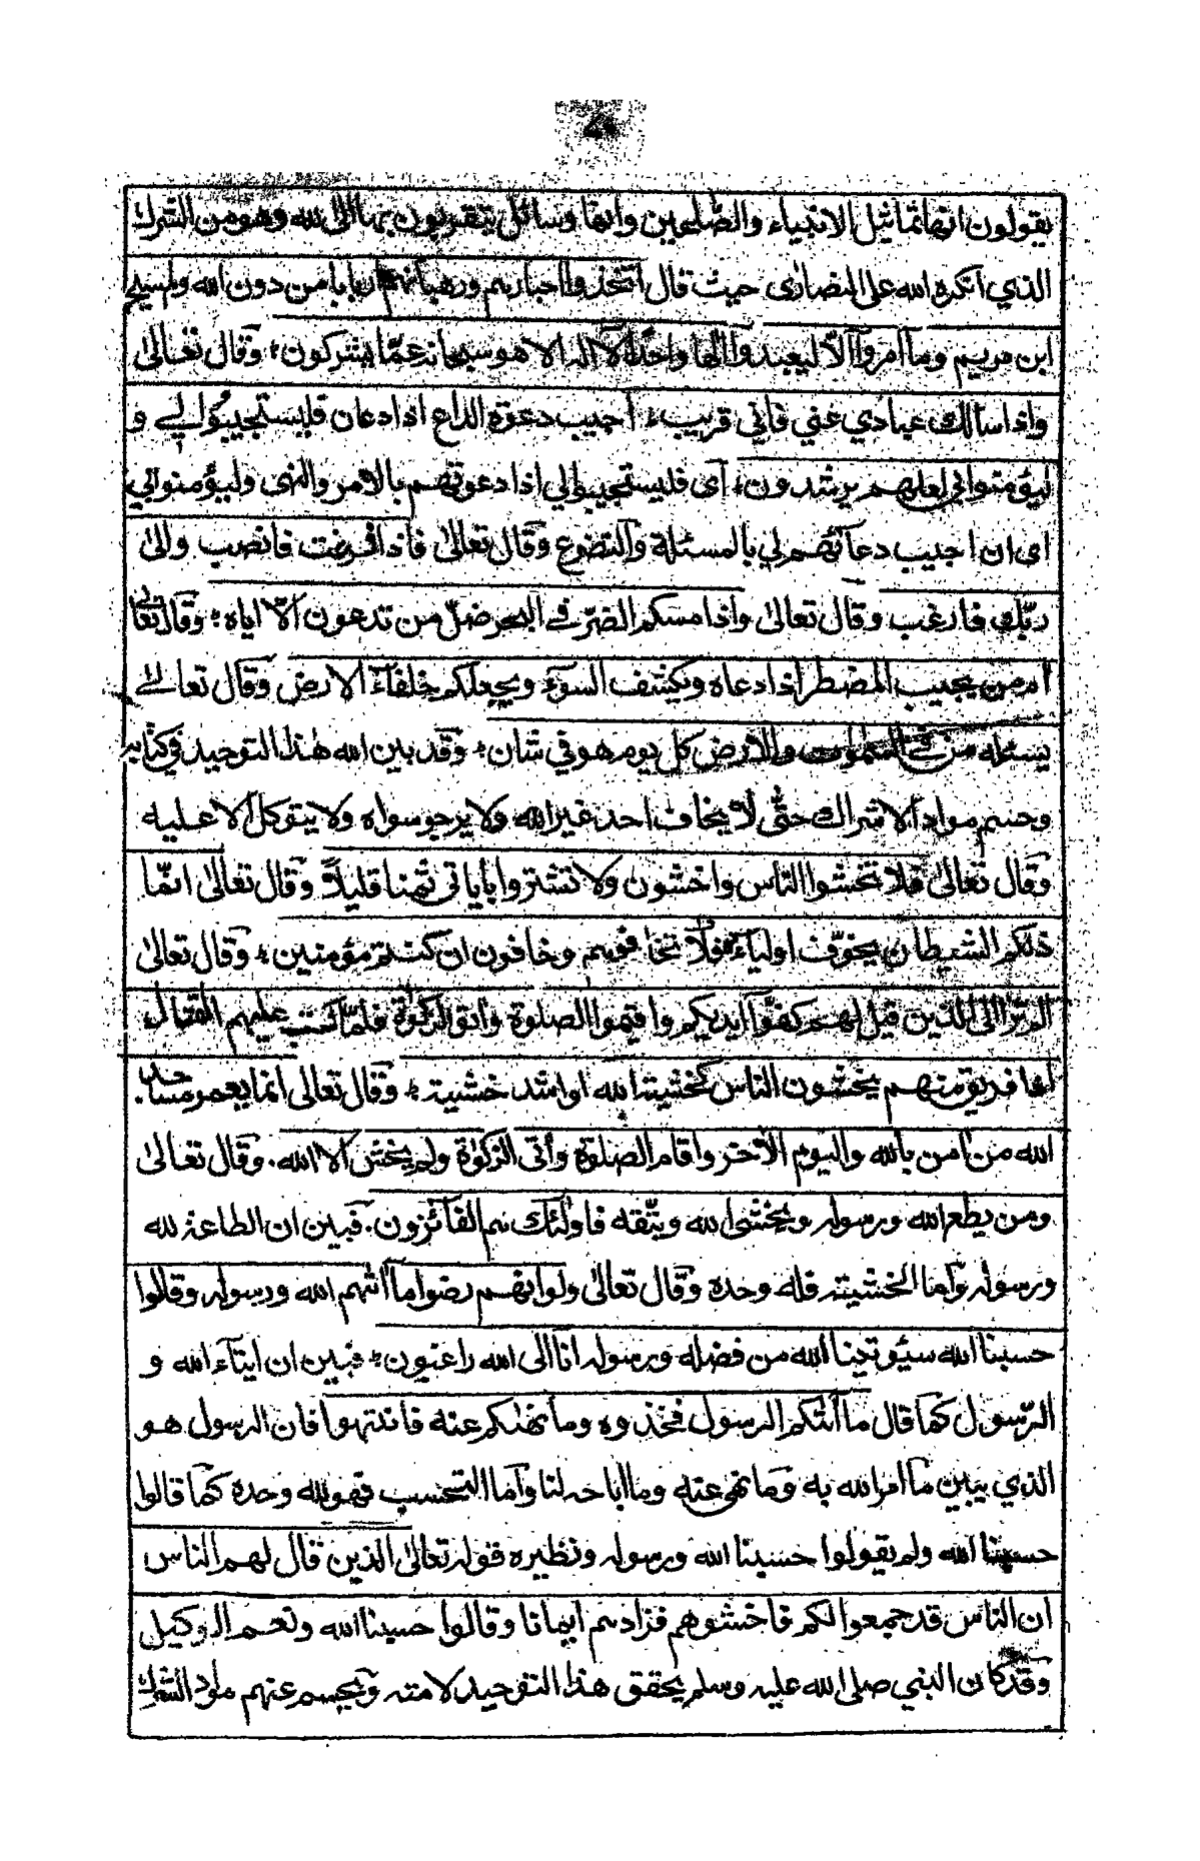 يقولون انها تماثيل الانبياء والصّلحين وانها وسائل يتقربون بها الى الله وهو من الشرك
الذي انكره الله على النصارٰى حيث قال اتخذوا احبارهم ورهبانهم اربابا من دون الله والمسيح
ابن مريم وما امروآ الّا ليعبدوآ الٰها واحدًا لآ الٰه الا هو سبحانه عمّا يشركون؛ وقال تعالىٰ
واذا سالك عبادي عني فاني قريب؛ اجيب دعوة الداع اذا دعان فليستجيبوا لي و
ليؤمنوا بي لعلهم يرشدون؛ اى فليستجيبوا لي اذا دعوتهم بالامر والنهى وليؤمنوا بي
اى ان اجيب دعآئهم لي بالمسئلة والتضرع وقال تعالىٰ فاذا فرغت فانصب والىٰ
ربّك فارغب وقال تعالىٰ واذا مسكم الضرّ في البحر ضلّ من تدعون الّا اياه؛ وقال تعالىٰ
امّن يجيب المضطر اذا دعاه ويكشف السوٓء ويجعلكم خلفآء الارض وقال تعالىٰ
يسئله من في السمٰوت والارض كل يوم هو في شان؛ وقد بين الله هٰذا التوحيد في كتابه
وحسم مواد الاشراك حتّى لا يخاف احد غير الله ولا يرجو سواه ولا يتوكل الا عليه
وقال تعالىٰ فلا تخشوا الناس واخشون ولا تشتروا باياتي ثمنا قليلًا وقال تعالىٰ انّما
ذلكم الشيطان يخوّف اولياءه فلا تخافوهم وخافون ان كنتم مؤمنين؛ وقال تعالىٰ
الم تر الى الذين قيل لهم كفّوآ ايديكم واقيموا الصلوة واٰتوا الزكوٰة فلمّا كتب عليهم القتال
اذا فريق منهم يخشون الناس كخشية الله او اشد خشية؛ وقال تعالى انما يعمر مساجد
الله من اٰمن بالله واليوم الاٰخر واقام الصلوٰة واٰتى الزكوٰة ولم يخش الا الله. وقال تعالىٰ
ومن يطع الله ورسوله ويخشى الله ويتّقه فاولٰئك هم الفآئزون. فبين ان الطاعة لله
ورسوله وّاما الخشية فلله وحده وقال تعالىٰ ولو انهم رضوا مآ اٰتٰهم الله ورسوله وقالوا
حسبنا الله سيؤتينا الله من فضله ورسوله انا الى الله راغبون؛ فبين ان ايتآء الله و
الرّسول كما قال مآ اٰتٰكم الرسول فخذوه وما نهٰىكم عنه فانتهوا فان الرسول هو
الذي يبين مآ امر الله به وما نهى عنه وما اباحه لنا واما التحسب فهو لله وحده كما قالوا
حسبنا الله ولم يقولوا حسبنا الله ورسوله ونظيره قوله تعالىٰ الذين قال لهم الناس
ان الناس قد جمعوا لكم فاخشوهم فزادهم ايمانا وقالوا حسبنا الله ونعم الوكيل
وقد كان النبي صلى الله عليه وسلم يحقق هذا التوحيد لامته ويحسم عنهم مواد الشرك